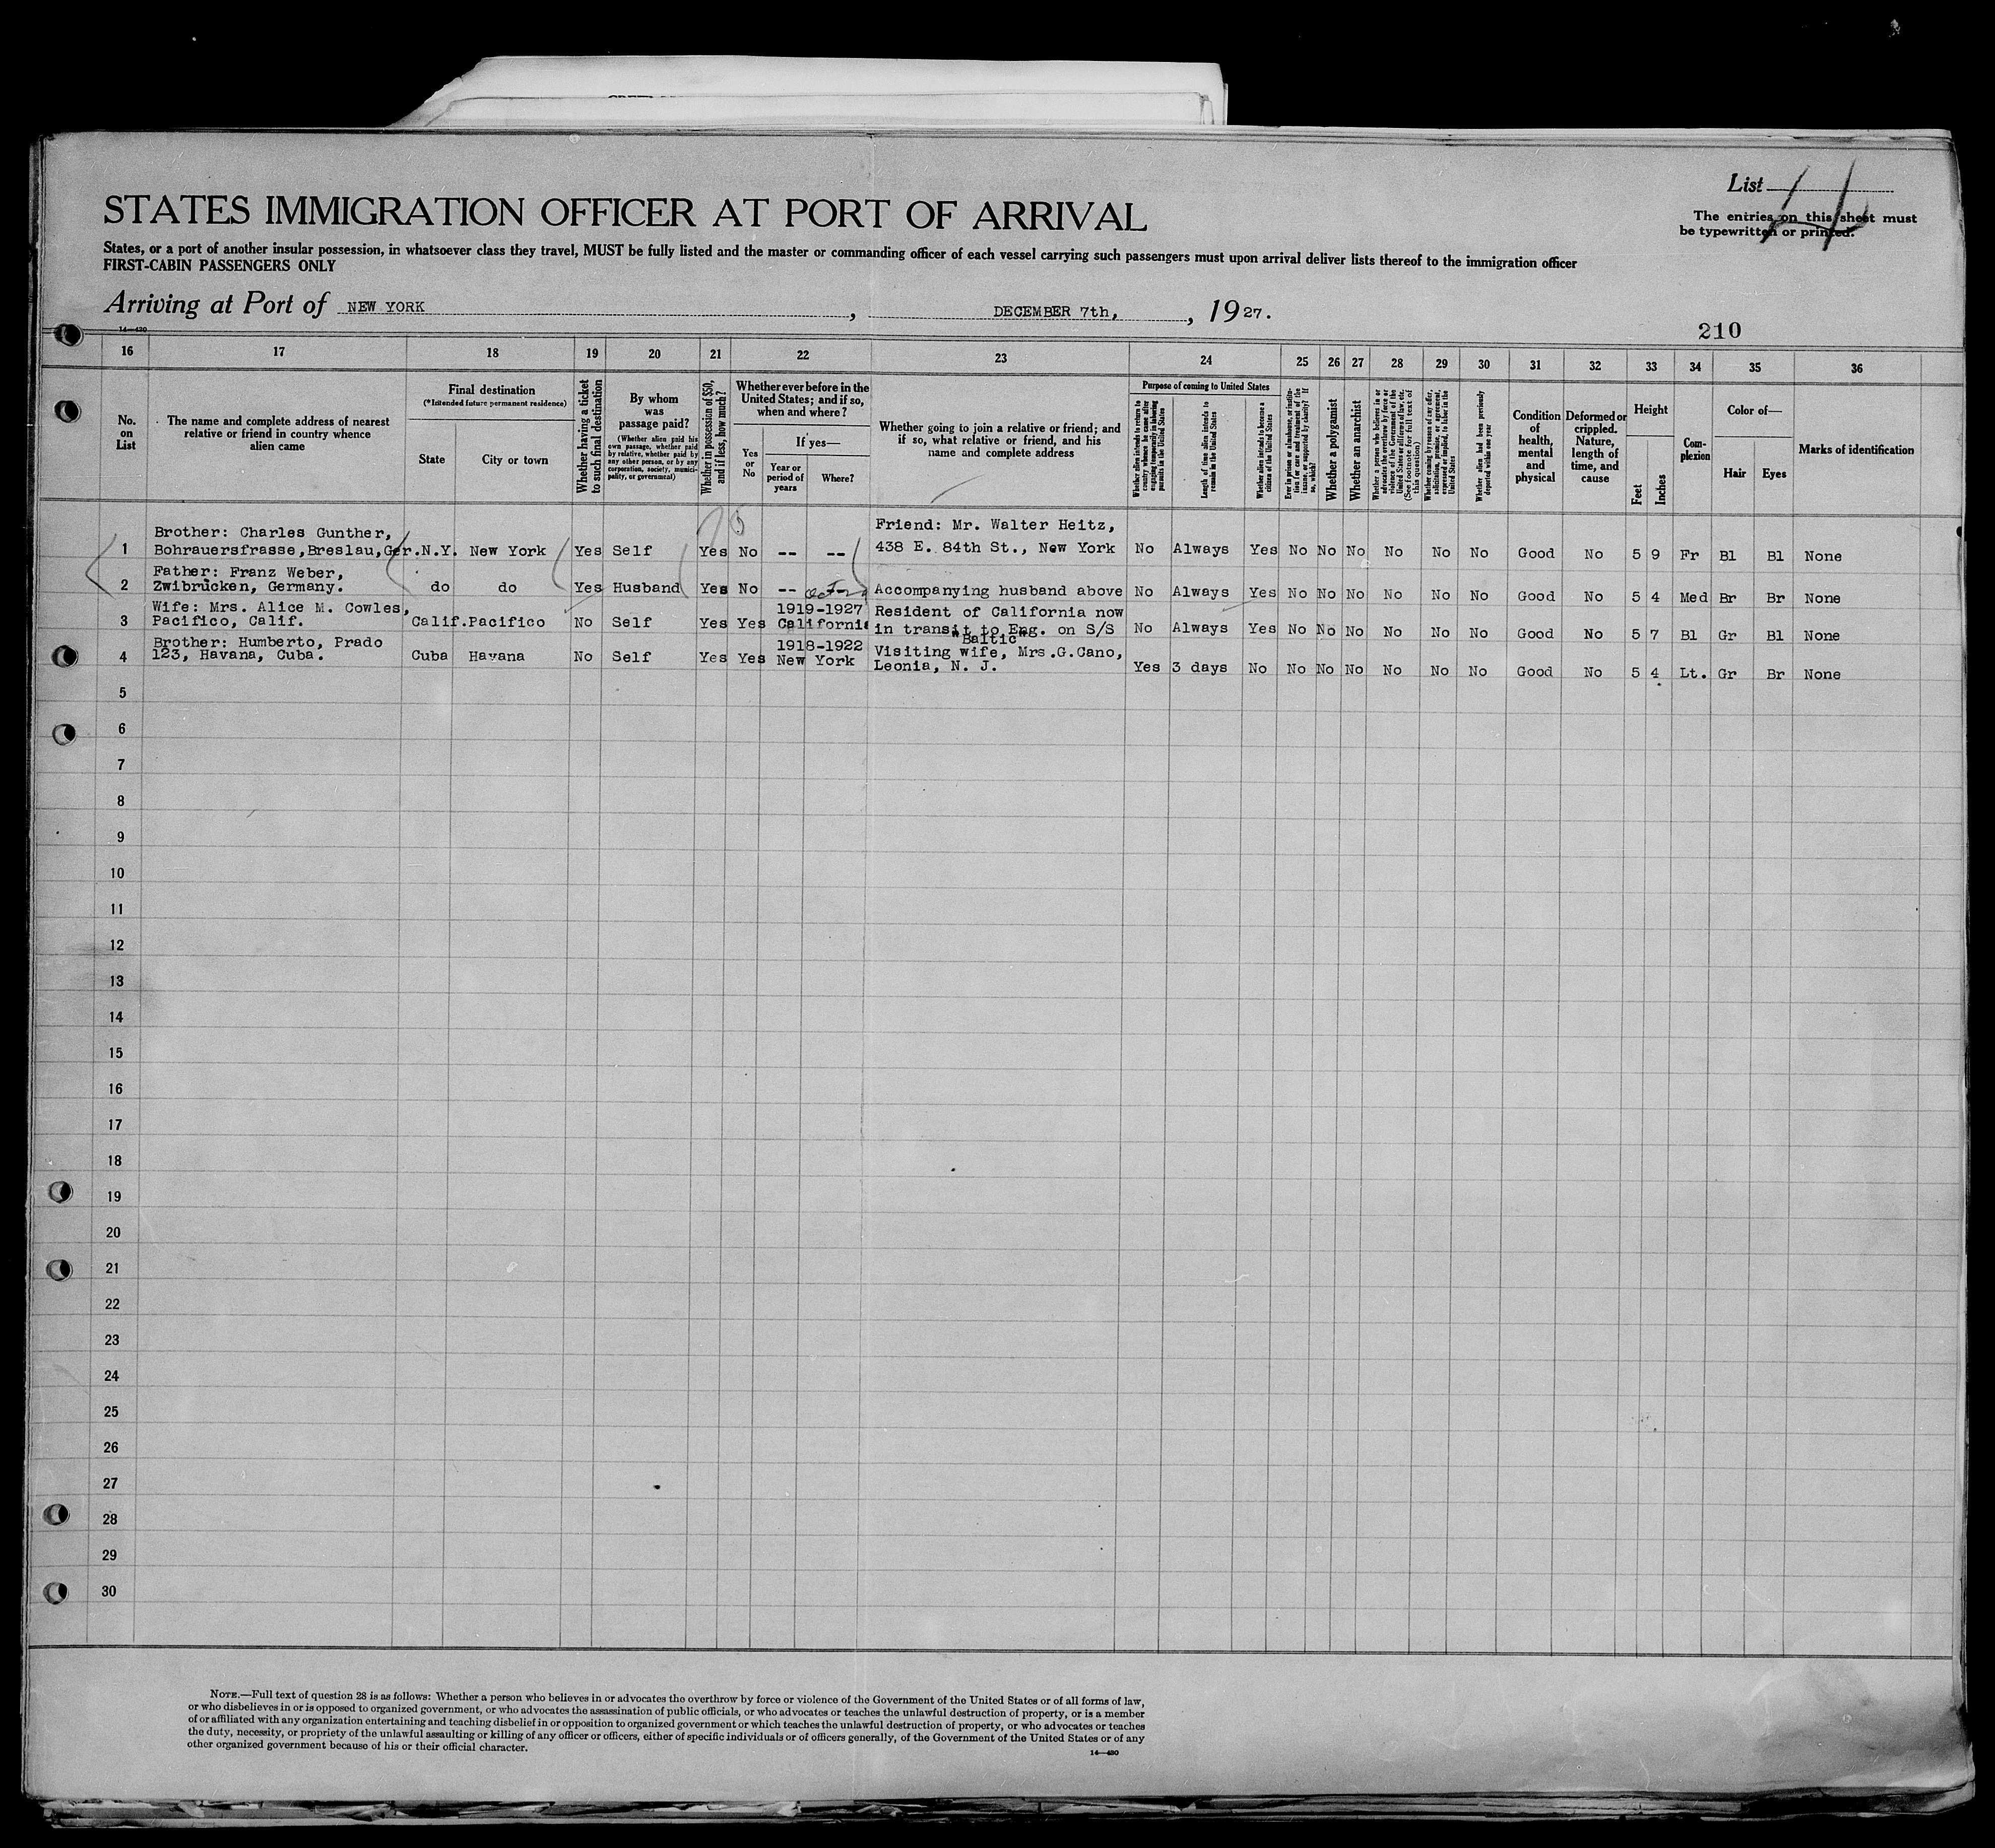 List
STATES IMMIGRATION OFFICER AT PORT OF ARRIVAL
The entries on this sheet must
be typewritten or printed.
States, or a port of another insular possession, in whatsoever class they travel, MUST be fully listed and the master or commanding officer of each vessel carrying such passengers must upon arrival deliver lists thereof to the immigration officer
FIRST-CABIN PASSENGERS ONLY
Arriving at Port of NEW YORK, DECEMBER 7th, 1927.
14—430
210
16 17 18 19 20 21 22 23 24 25 26 27 28 29 30 31 32 33 34 35 36
No. on List
The name and complete address of nearest relative or friend in country whence alien came
Final destination
(*Intended future permanent residence)
State City or town
Whether having a ticket to such final destination
By whom was passage paid?
(Whether alien paid his own passage, whether paid by relative, whether paid by any other person, or by any corporation, society, municipality, or government)
Whether in possession of $50, and if less, how much?
Whether ever before in the United States; and if so, when and where?
Yes or No
If yes—
Year or period of years
Where?
Whether going to join a relative or friend; and if so, what relative or friend, and his name and complete address
Purpose of coming to United States
Whether alien intends to return to country whence he came after engaging temporarily in laboring pursuits in the United States
Length of time alien intends to remain in the United States
Whether alien intends to become a citizen of the United States
Ever in prison or almshouse, or institution for care and treatment of the insane, or supported by charity? If so, which?
Whether a polygamist
Whether an anarchist
Whether a person who believes in or advocates the overthrow by force or violence of the Government of the United States or all forms of law, etc. (See footnote for full text of this question)
Whether coming by reason of any offer, solicitation, promise, or agreement, expressed or implied, to labor in the United States
Whether alien had been previously deported within one year
Condition of health, mental and physical
Deformed or crippled. Nature, length of time, and cause
Height
Feet Inches
Complexion
Color of—
Hair Eyes
Marks of identification
1 Brother: Charles Gunther, Friend: Mr. Walter Heitz,
Bohrauersfrasse,Breslau,Ger. N.Y. New York Yes Self Yes No -- -- 438 E. 84th St., New York No Always Yes No No No No No No Good No 5 9 Fr Bl Bl None
2 Father: Franz Weber,
Zwibrucken, Germany. do do Yes Husband Yes No -- Accompanying husband above No Always Yes No No No No No No Good No 5 4 Med Br Br None
3 Wife: Mrs. Alice M. Cowles, 1919-1927 Resident of California now
Pacifico, Calif. Calif. Pacifico No Self Yes Yes California in transit to Eng. on S/S No Always Yes No No No No No No Good No 5 7 Bl Gr Bl None
"Baltic"
4 Brother: Humberto, Prado 1918-1922 Visiting wife, Mrs.G.Cano,
123, Havana, Cuba. Cuba Havana No Self Yes Yes New York Leonia, N. J. Yes 3 days No No No No No No No Good No 5 4 Lt. Gr Br None
5
6
7
8
9
10
11
12
13
14
15
16
17
18
19
20
21
22
23
24
25
26
27
28
29
30
NOTE.—Full text of question 28 is as follows: Whether a person who believes in or advocates the overthrow by force or violence of the Government of the United States or of all forms of law,
or who disbelieves in or is opposed to organized government, or who advocates the assassination of public officials, or who advocates or teaches the unlawful destruction of property, or is a member
of or affiliated with any organization entertaining and teaching disbelief in or opposition to organized government or which teaches the unlawful destruction of property, or who advocates or teaches
the duty, necessity, or propriety of the unlawful assaulting or killing of any officer or officers, either of specific individuals or of officers generally, of the Government of the United States or of any
other organized government because of his or their official character.
14—430